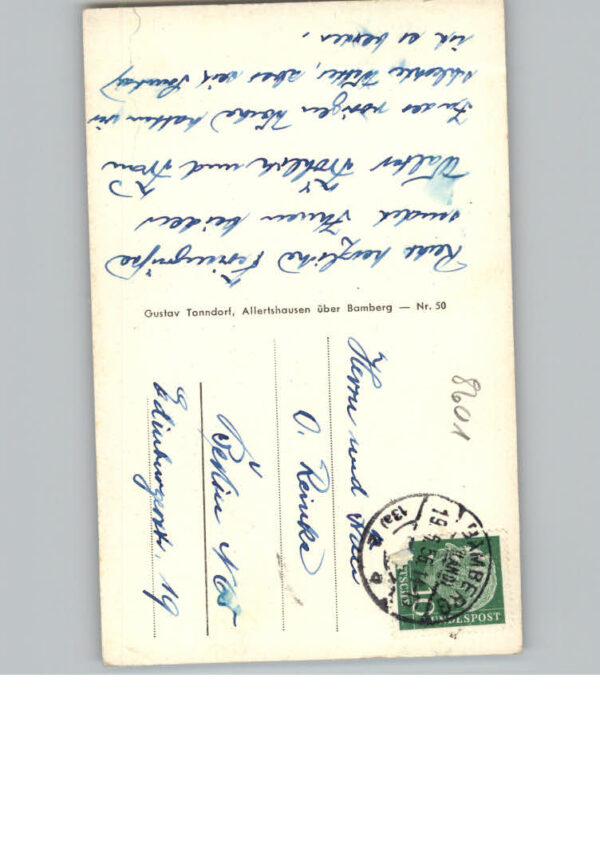 Recht herzliche Feriengrüße
sendet Ihnen beiden
Walter Fröhlich und Frau
In der vorigen Woche hatten wir
schlechte Wetter, aber seit Sonntag
ist es besser.
Gustav Tonndorf, Allertshausen über Bamberg — Nr. 50
Herrn und Frau
O. Reinke
Berlin N 65
Edinburgerstr. 19
8601
BAMBERG 2
(13a)
a
10
UNDESPOST